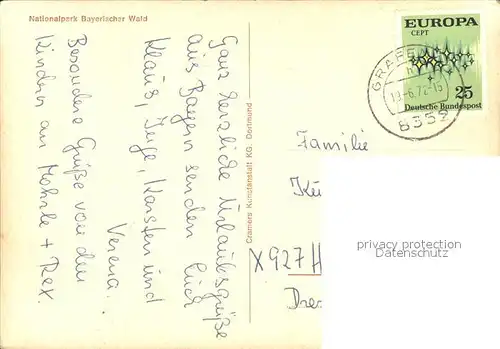 Nationalpark Bayerischer Wald
Ganz herzliche Urlaubsgrüße
aus Bayern senden Euch
Klaus, Inge, Karsten und
Verena.
Besondere Grüße von den
Kindern an Mohrle + Rex.
Cramers Kunstanstalt KG. Dortmund
EUROPA
CEPT
25
Deutsche Bundespost
8352
Familie
X 927 H
privacy protection
Datenschutz